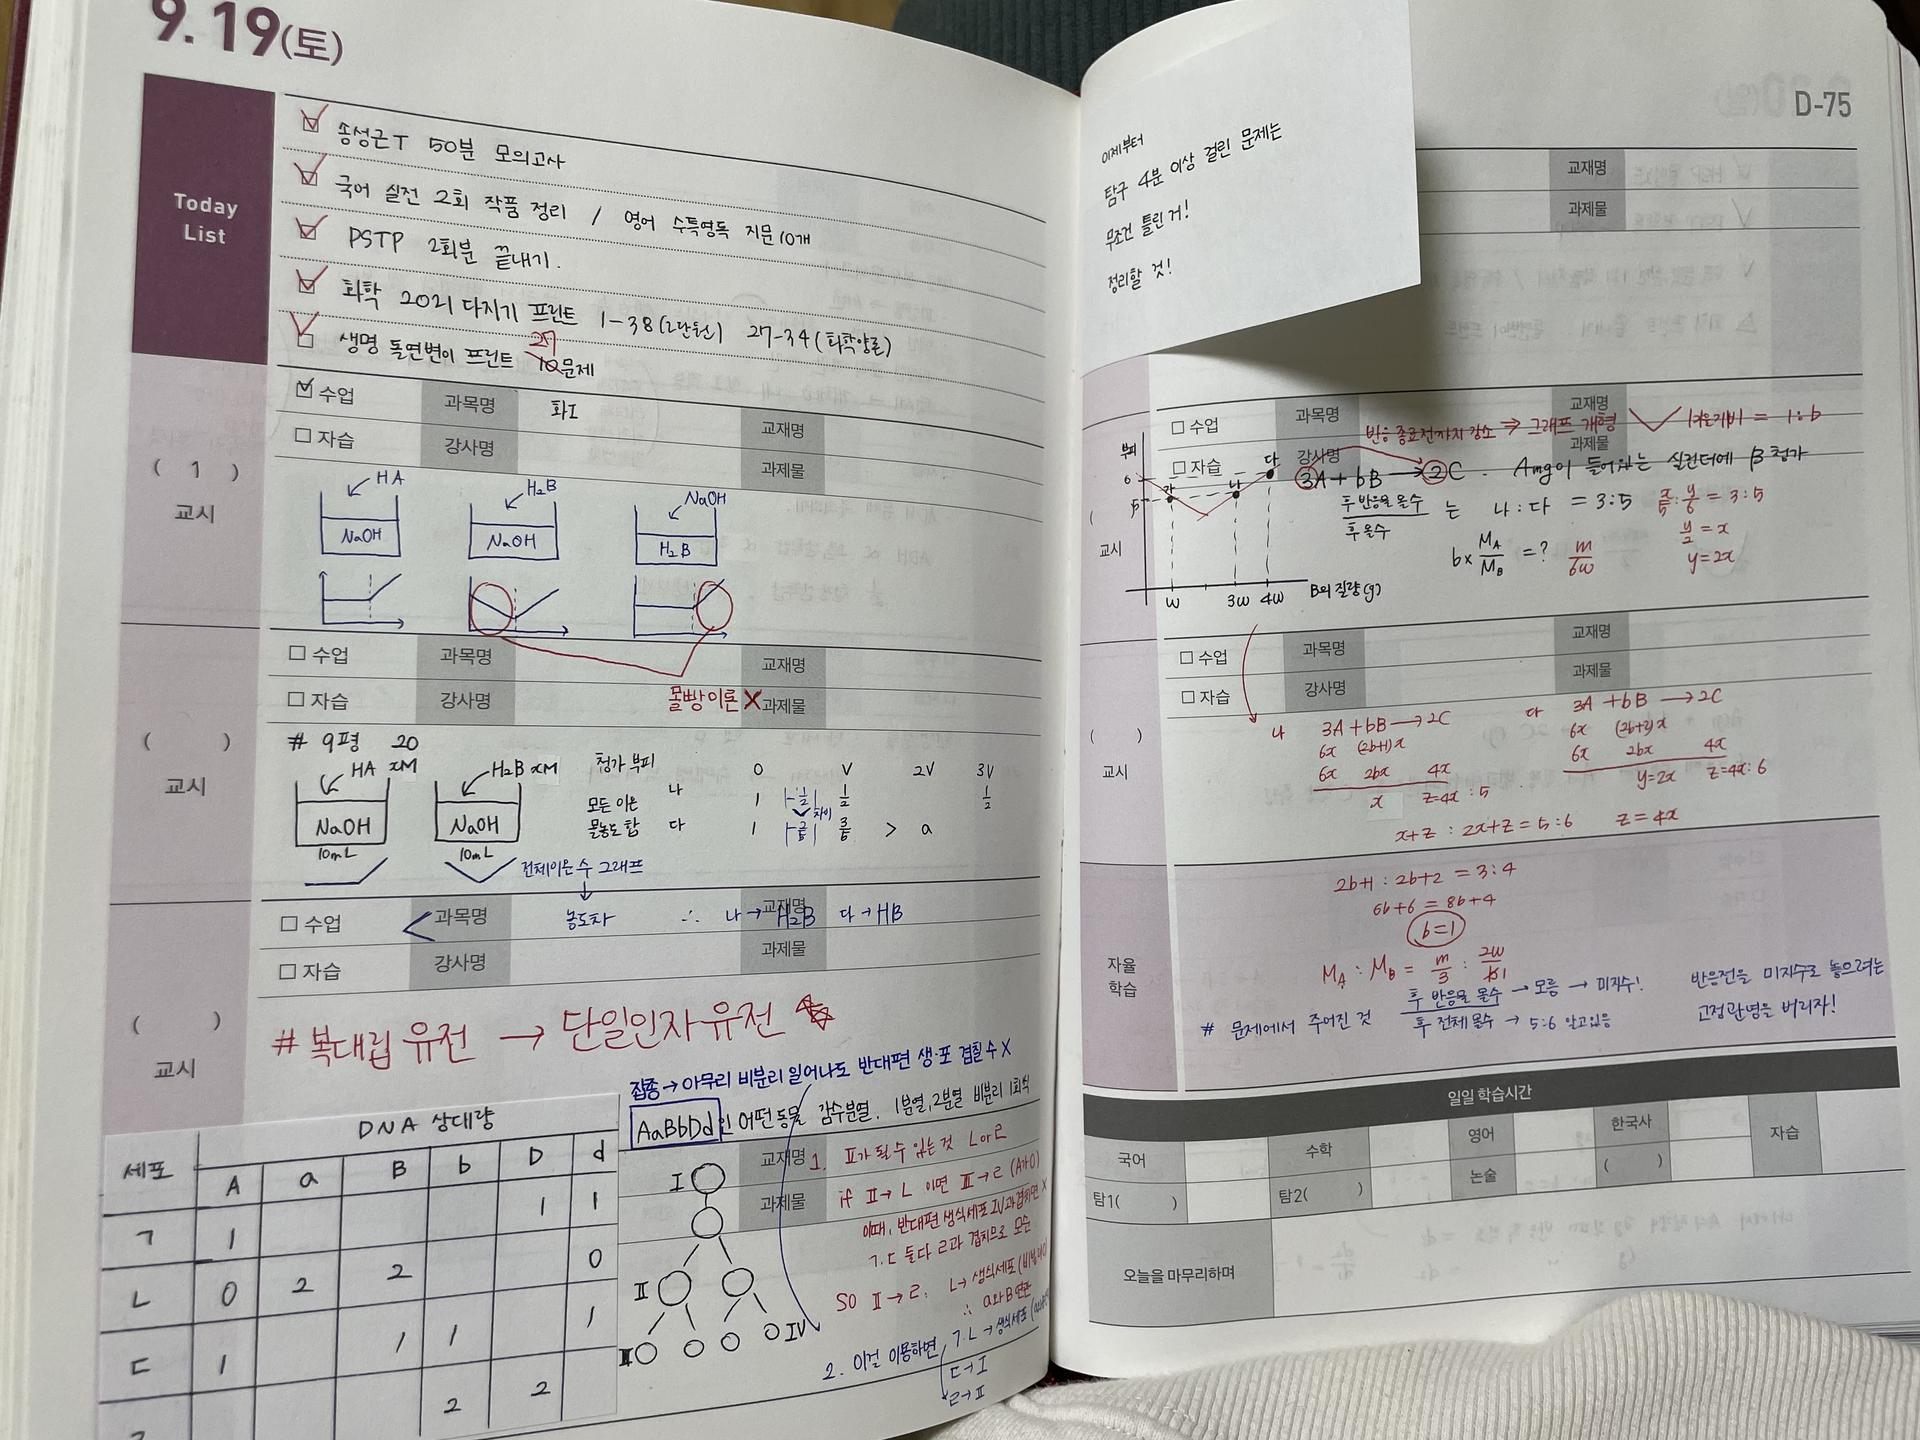 9.19(토)
Today List
송성근T 50분 모의고사
국어 실전 2회 작품 정리 / 영어 수특영독 지문 10개
PSTP 2회분 끝내기.
화학 2021 다지기 프린트 1-38(2단원) 27-34(화학양론)
생명 돌연변이 프린트 10 27 문제
( 1 ) 교시
수업 과목명 화I 교재명
자습 강사명 과제물
HA H₂B NaOH
NaOH NaOH H₂B
수업 과목명 교재명
자습 강사명 과제물
몰빵이론 X
( ) 교시
# 9평 20
HA xM H₂B xM
NaOH NaOH
10mL 10mL
첨가 부피 0 V 2V 3V
모든 이온 나 1 1/2 1/2
몰농도 합 다 1 3/5 > a
차이
전체이온 수 그래프
농도차 ∴ 나→H₂B 다→HB
수업 과목명 교재명
자습 강사명 과제물
( ) 교시
#복대립 유전 → 단일인자 유전
집중→아무리 비분리 일어나도 반대편 생·포 겹칠 수 X
AaBbDd인 어떤 동물 감수분열. 1분열, 2분열 비분리 1회씩
교재명
과제물
DNA 상대량
세포 A a B b D d
ㄱ 1 1 1
ㄴ 0 2 2 0
ㄷ 1 1 1 1
2 2
I
II
III IV
1. II가 될 수 있는 것 L or ㄹ
if II→L 이면 III→ㄹ (A가0)
이때, 반대편 생식세포 IV과 겹치면 X
ㄱ.ㄷ 둘다 ㄹ과 겹치므로 모순
SO II→ㄹ. L→생식세포
∴ a와B연관
2. 이걸 이용하면 ㄱ.L→생식세포
ㄷ→I
ㄹ→II
이제부터
탐구 4분 이상 걸린 문제는
무조건 틀린 거!
정리할 것!
D-75
교재명
과제물
수업 과목명 교재명
자습 강사명 과제물
( 교시
반응 종료전까지 감소 ⇒ 그래프 개형 1:b
3A+bB→2C. Amg이 들어있는 실린더에 B 첨가
후 반응물 몰수 / 후 몰수 는 나:다 = 3:5
x/5 : y/6 = 3:5
y/2 = x
y=2x
b× M_A/M_B = ? m/6w
부피
6
5
가 나 다
w 3w 4w B의 질량(g)
수업 과목명 교재명
자습 강사명 과제물
( ) 교시
나 3A+bB→2C 다 3A+bB→2C
6x (2b+1)x 6x (2b+2)x
6x 2bx 4x 6x 2bx 4x
x z=4x:5 y=2x z=4x:6
x+z : 2x+z = 5:6 z=4x
자율 학습
2b+1 : 2b+2 = 3:4
6b+6 = 8b+4
b=1
M_A : M_B = m/3 : 2w/1
# 문제에서 주어진 것 후 반응물 몰수 → 모름 → 미지수!
후 전체 몰수 → 5:6 알고있음
반응전을 미지수로 놓으려는
고정관념을 버리자!
일일 학습시간
국어 수학 영어 한국사 자습
탐1( ) 탐2( ) 논술 ( )
오늘을 마무리하며